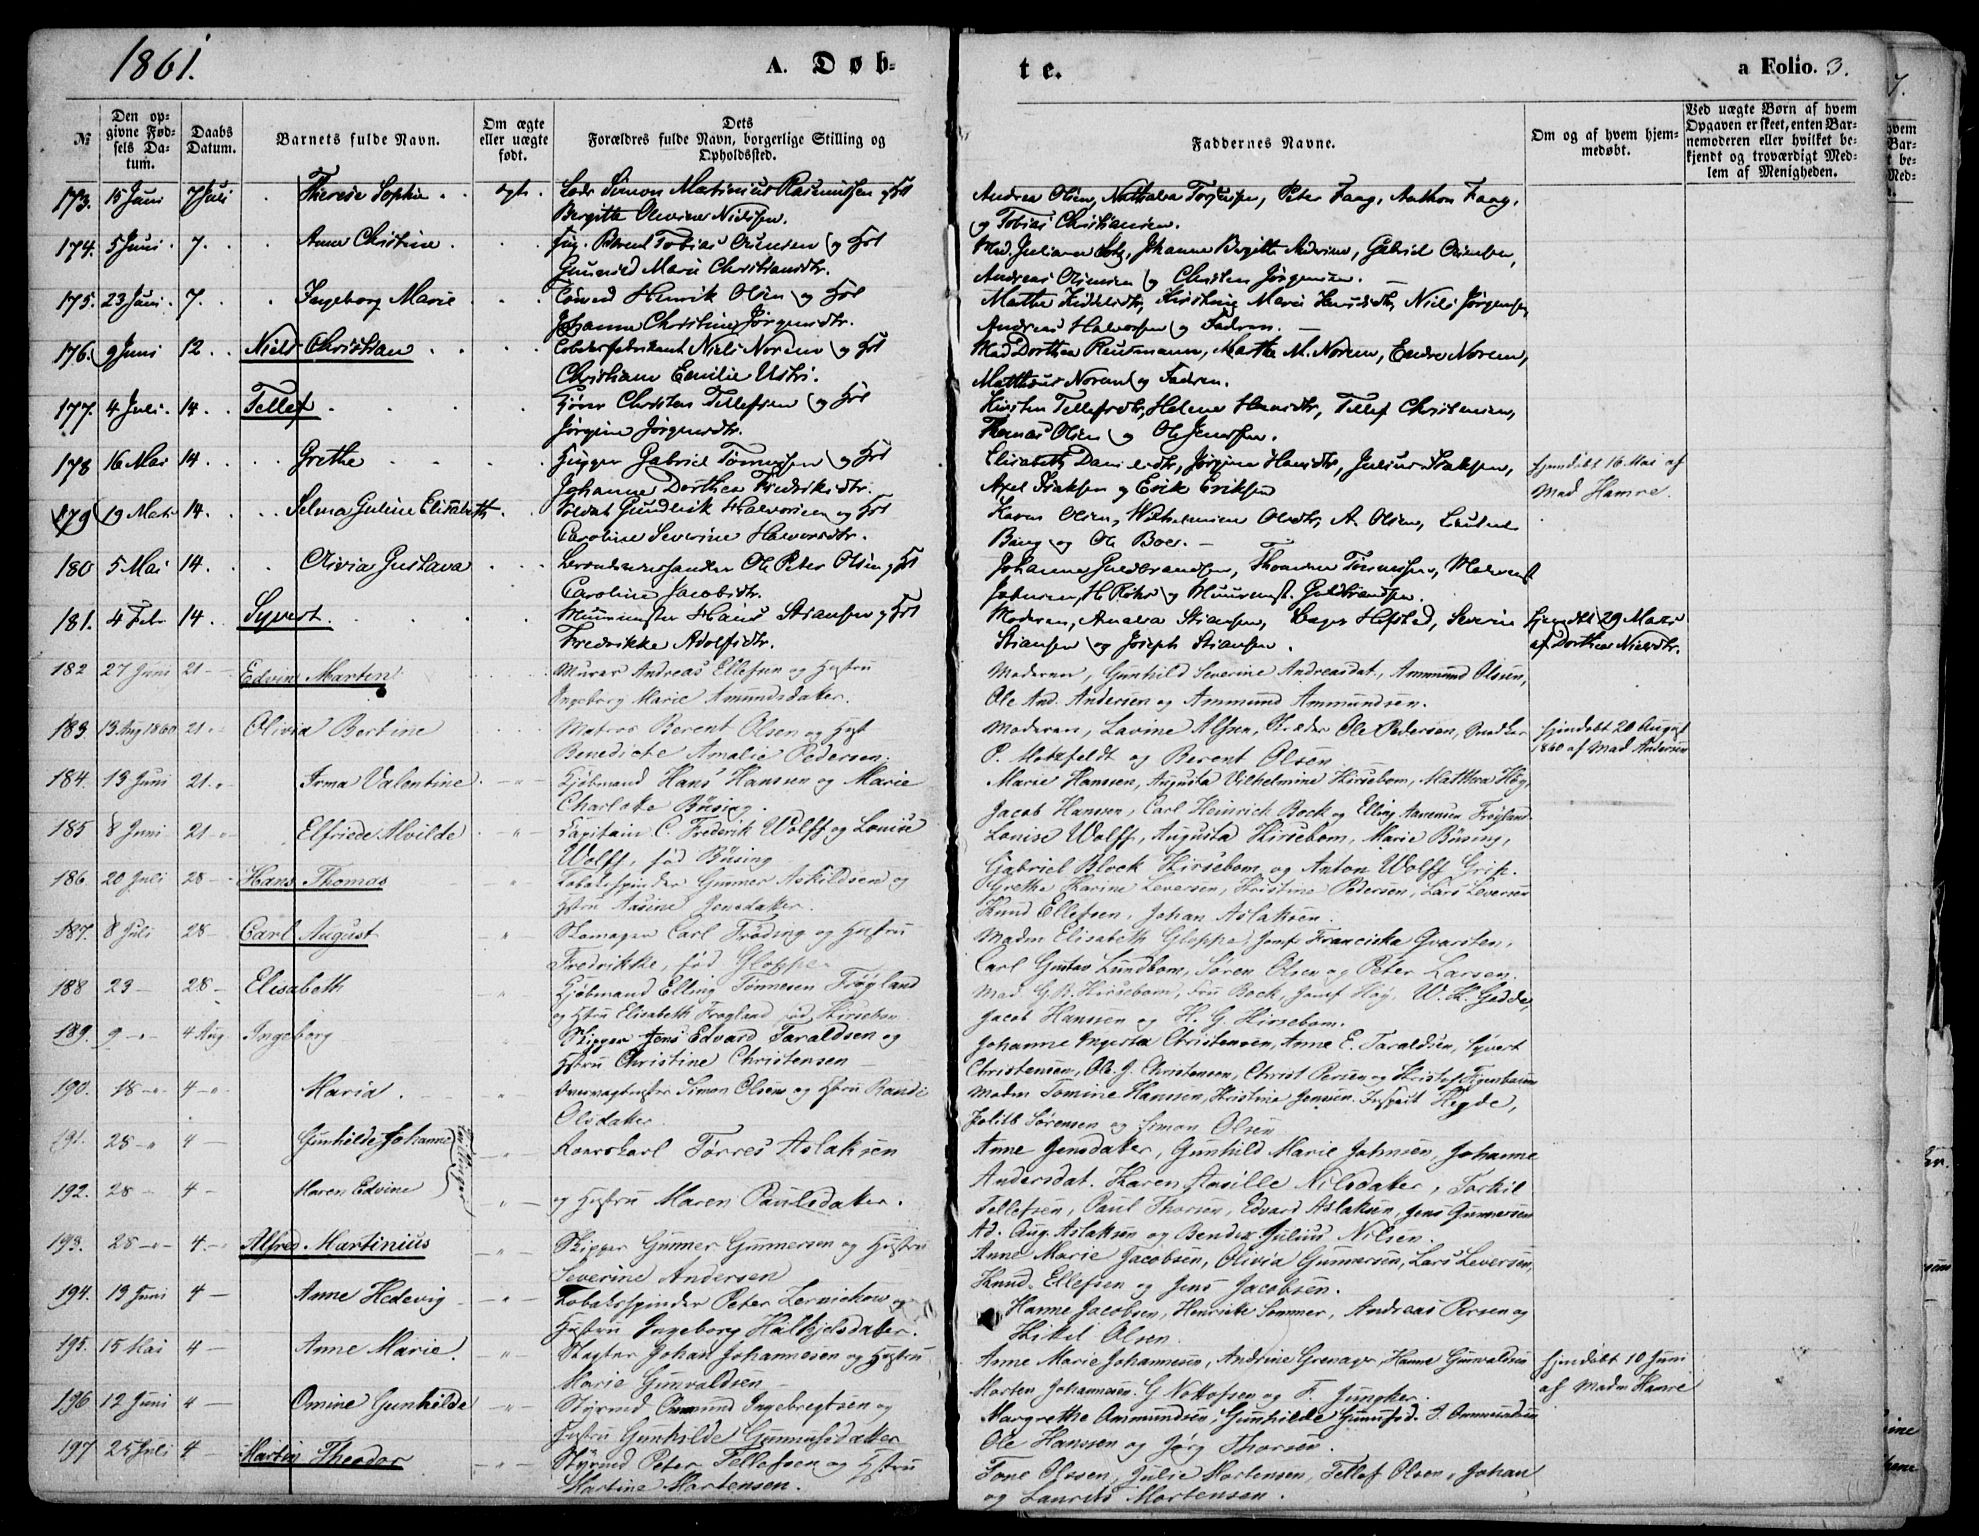 1861.
A. Døb-
te.
a Folio. 3.
№
Den opgivne Fødsels Datum.
Daabs Datum.
Barnets fulde Navn.
Om ægte eller uægte født.
Dets Forældres fulde Navn, borgerlige Stilling og Opholdssted.
Faddernes Navne.
Om og af hvem hjemmedøbt.
Ved uægte Børn af hvem Opgaven er skeet, enten Barnemoderen eller hvilket bekjendt og troværdigt Medlem af Menigheden.
173. 15 Juni 7 Juli Therese Sophie ægte Simon Martinius Rasmussen og Hst
Bergitte Olevine Nielsen.
Andrea Olsen, Peter Faag, Anthon Faag,
og Tobias Christiansen.
174. 5 Juni 7. Anne Christine Tobias og Hst
Gunnild Marie Christiansdtr.
Mad. Juliane Johanne Bergitte Gabriel
Andreas og Christen Jørgensen.
175. 23 Juni 7. Ingeborg Marie Henrik Olsen og Hst
Johanne Christine Jørgensdtr.
Marthe Marie Niels Jørgensen
Andreas Halvorsen og Fadren.
176. 9 Juni 12 Niels Christian Niels Norem og Hst
Christiane Emilie
Mad Dorthea Marthe M. Norem, Endre Norem,
Matthæus Norem og Fadren.
177. 4 Juli 14. Tellef Christen Tellefsen og Hst
Jørgine Jørgensdtr.
Kirsten Tellefsdtr, Helene Tellef Christensen,
Thomas Olsen og Ole Jensen.
178 16 Mai 14. Grethe Gabriel Tønnessen og Hst
Johanne Dorthea Fredriksdtr.
Elisabeth Danielsdtr, Jørgine Hansdtr, Julius Isaksen,
Axel Isaksen og Erik Eriksen
hjemdøbt 16 Mai af
Mad Hamre.
179 19 14. Selma Guline Elisabeth Gundleik Halvorsen og Hst
Caroline Severine Halvorsdtr.
Karen Olsen, Wilhelmine Olsdtr, A. Olsen,
Bang og Ole Boe.
180 5 Mai 14. Olivia Gustava Ole Peter Olsen og Hst
Caroline Jacobsdtr.
Johanne Guldbrandsen, Tønnessen,
H. og Guldbrandsen.
181. 4 Febr 14 Syvert. Muurmester Hans Stiansen og Hst
Fredrikke Adolfsdtr.
Moderen, Amalia Stiansen, Severin
Stiansen og Joseph Stiansen.
hjemdbt 29 Marts
af Dorthea Nielsdtr.
182 27 Juni 21 Edvin Martin Murer Andreas Ellefsen og Hustru
Ingeborg Marie Amundsdatter.
Moderen, Gunhild Severine Andreasdat., Ammund Olsen,
Ole And. Andersen og Ammund Ammundsen.
183 13 Aug 1860 21 Olivia Bertine Matros Berent Olsen og Hust
Benedicte Amalie Pedersen.
Moderen, Lavine Alfsen, Ole Pedersen,
P. Motzfeldt og Berent Olsen.
hjemdøbt 20 August
1860 af Mad Andersen
184. 13 Juni 21 Irma Valentine Kjøbmand Hans Hansen og Marie
Charlotte Büsing.
Marie Hanssen, Augusta Vilhelmine Hirsebom, Matthea Høg,
Jacob Hansen, Carl Heinrich Bock og Elling Frøyland.
185 8 Juni 21 Elfriede Alvilde Kapitain C. Frederik Wolff og Louise
Wolff, fød Büsing
Louise Wolff, Augusta Hirsebom, Marie Büsing,
Gabriel Block Hirsebom og Anton Wolff Grip.
186 20 Juli 28 Hans Thomas Tobaksspinder Gunner Askildsen og
Hstru Aasine Jensdatter.
Grethe Karine Leversen, Kristine Pedersen, Lars Leversen
Knud Ellefsen, Johan Aslaksen.
187. 8 Juli 28 Carl August Skomager Carl Frøding og Hustru
Fredrikke, fød Gloppe
Madm Elisabeth Gloppe, Jomf Franciska Qvarsten,
Carl Gustav Lundbom, Søren Olsen og Peter Larsen.
188 23 28 Elisabeth Kjøbmand Elling Tønnesen Frøyland
og Hstru Elisabeth Frøyland fød Hirsebom
Mad. G. B. Hirsebom, Fru Bock, Jomf Høg, W. K. Gedde,
Jacob Hanssen og H. G. Hirsebom.
189. 9 4 Aug Ingeborg Skipper Jens Edvard Taraldsen og
Hstru Christine Christensen
Johanne Christensen, Anne E. Taraldsen, Syvert
Christensen, Ole G. Christensen, Christ Persen og
190. 18 4 Maria Simon Olsen og Hstru Randi
Olsdatter.
Madm Tomine Hanssen, Kristine Jensen. Hegde,
Sørensen og Simon Olsen
191. 28 4 Gunhilde Johanne Tvillinger Tørres Aslaksen
Anne Jensdatter, Gunhild Marie Johnsen, Johanne
Andersdat. Karen Nilsdatter, Torkil
192. 28 4 Maren Edvine og Hustru Maren Paulsdatter.
Tellefsen, Paul Thorsen, Edvard Aslaksen, Jens Gunnersen
Ad. Aug. Aslaksen og Bendix Julius Nilsen.
193. 28 4. Alfred Martinius Skipper Gunner Gunnersen og Hustru
Severine Andersen
Anne Marie Jacobsen, Olivia Gunnersen, Lars Leversen,
Knud Ellefsen og Jens Jacobsen.
194. 19 Juni 4 Anne Hedevig Tobaksspinder Peter og
Hustru Ingeborg
Hanne Jacobsen, Henrik Sommer, Andreas Persen og
Kitel Olsen.
195. 15 Mai 4 Anne Marie. Slagter Johan Johannesen og Hustru
Marie Gunvaldsen
Anne Marie Johannesen, Andrine Grenager, Hanne Gunvaldsen
Morten Johannesen. G Nottofsen og F. Jungker.
hjemdøbt 10 Juni
af Madm Hamre
196 12 Juni 4 Omine Gunhilde Styrmd Ommund Ingebregtsen og
Hustru Gunhilde
Margrethe Ommundsen, Gunhilde
Ole Hanssen og Jørg Thorsen.
197 25 Juli 4 Martin Theodor Styrmd Peter Tellefsen og Hstru
Martine Mortensen.
Tone Olsen, Julie Mortensen, Tellef Olsen, Johan
og Laurits Mortensen.